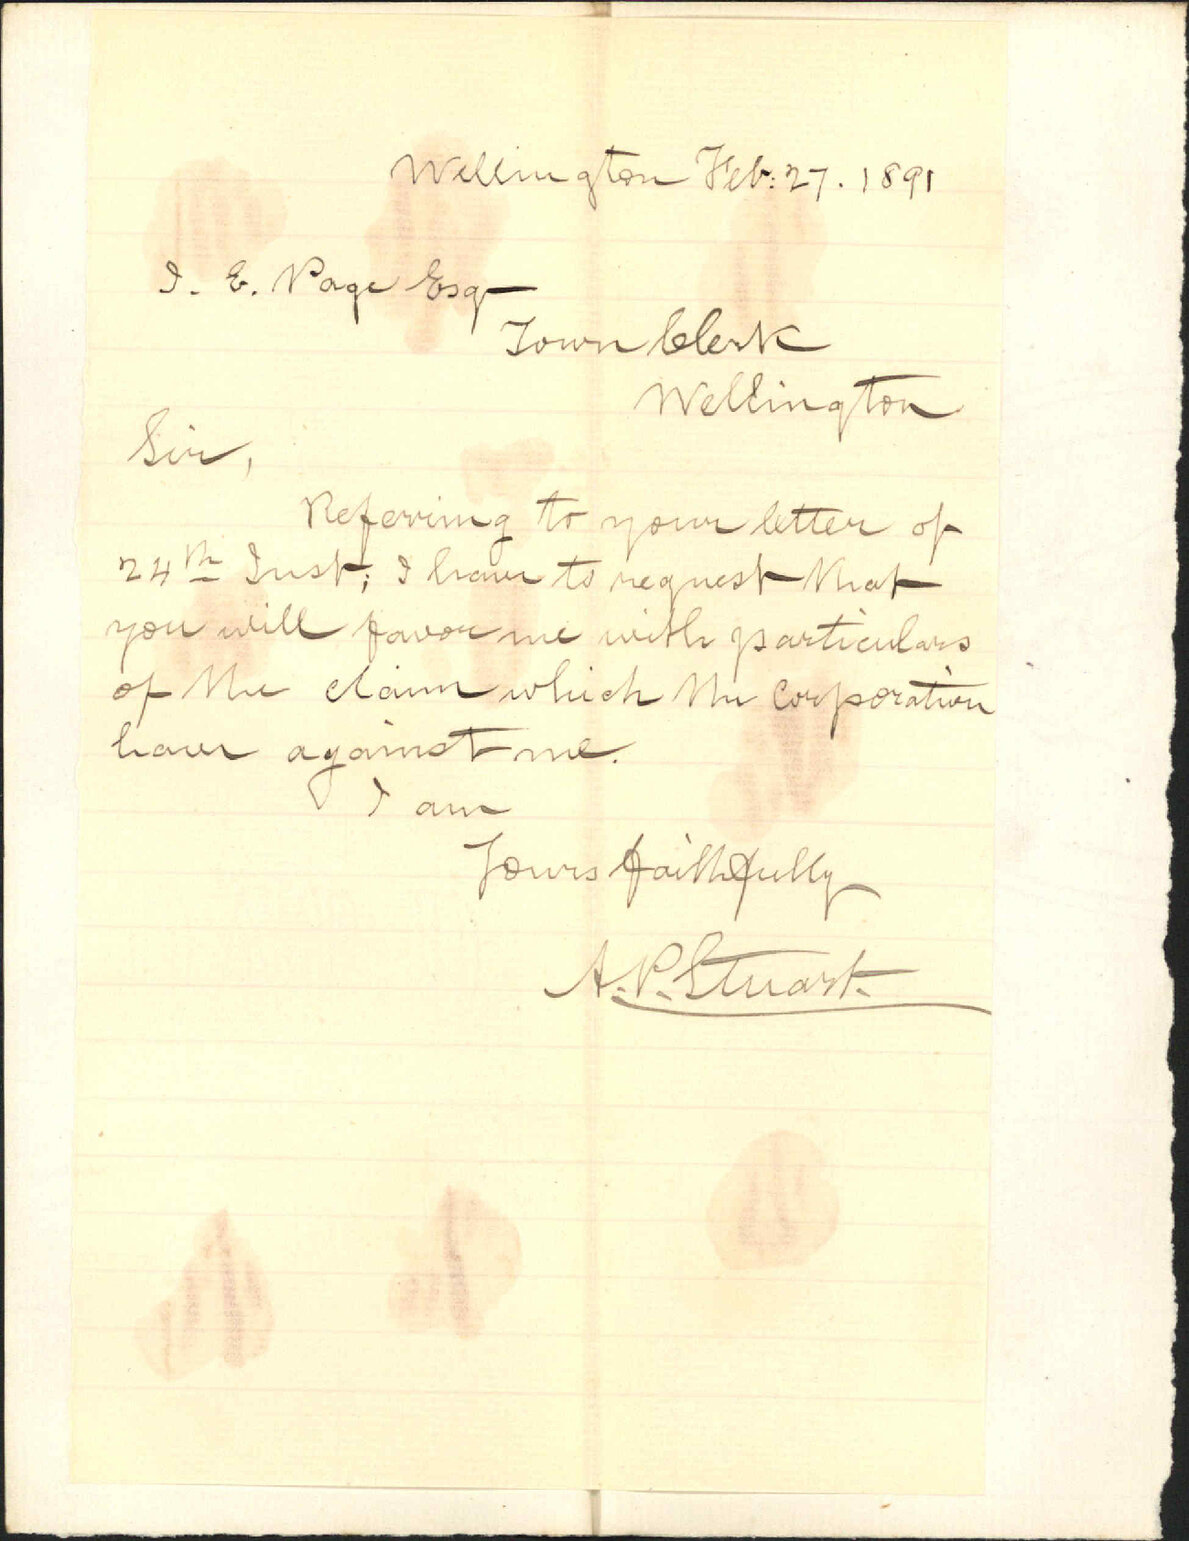 Wellington Feb: 27. 1891
J. E. Page Esq
Town Clerk
Wellington
Sir,
Referring to your letter of
24th Inst; I have to request that
you will favor me with particulars
of the claim which the Corporation
have against me.
I am
Yours faithfully
A. P. Stuart.